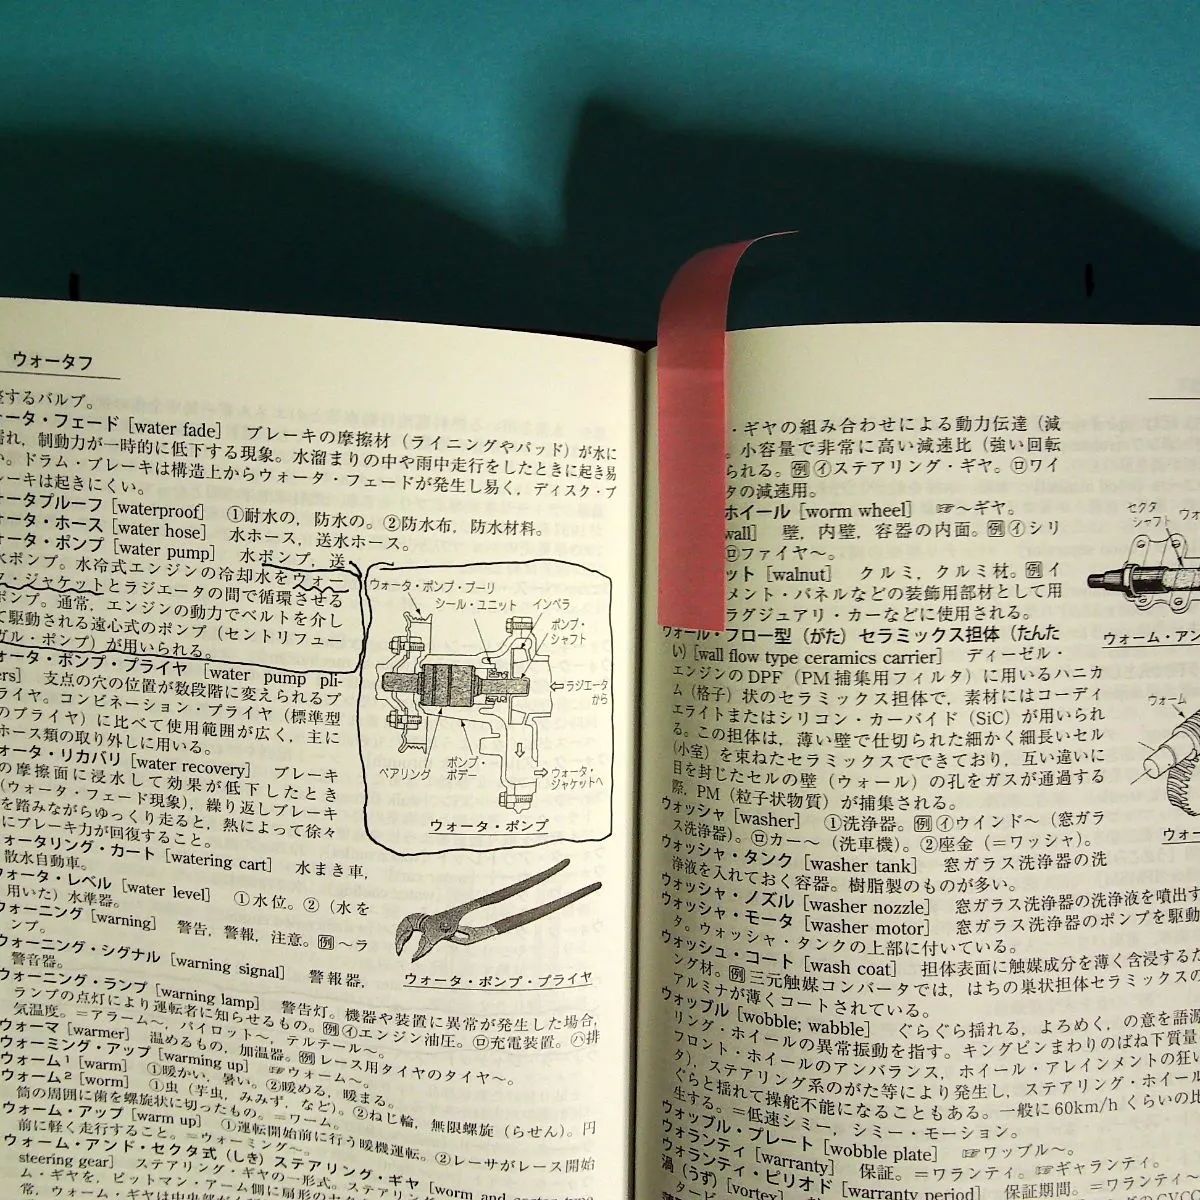 ウォータフ
整するバルブ。
ータ・フェード [water fade] ブレーキの摩擦材 (ライニングやパッド) が水に
濡れ, 制動力が一時的に低下する現象。水溜まりの中や雨中走行をしたときに起き易
い。ドラム・ブレーキは構造上からウォータ・フェードが発生し易く, ディスク・ブ
レーキは起きにくい。
ォータプルーフ [waterproof] ①耐水の, 防水の。②防水布, 防水材料。
ォータ・ホース [water hose] 水ホース, 送水ホース。
ォータ・ポンプ [water pump] 水ポンプ, 送
水ポンプ。水冷式エンジンの冷却水をウォー
タ・ジャケットとラジエータの間で循環させる
ポンプ。通常, エンジンの動力でベルトを介し
て駆動される遠心式のポンプ (セントリフュー
ガル・ポンプ) が用いられる。
ォータ・ポンプ・プライヤ [water pump pli-
ers] 支点の穴の位置が数段階に変えられるプ
ライヤ。コンビネーション・プライヤ (標準型
のプライヤ) に比べて使用範囲が広く, 主に
ホース類の取り外しに用いる。
ォータ・リカバリ [water recovery] ブレーキ
の摩擦面に浸水して効果が低下したとき
(ウォータ・フェード現象), 繰り返しブレーキ
を踏みながらゆっくり走ると, 熱によって徐々
にブレーキ力が回復すること。
ォータリング・カート [watering cart] 水まき車,
散水自動車。
ォータ・レベル [water level] ①水位。② (水を
用いた) 水準器。
ウォーニング [warning] 警告, 警報, 注意。例〜ラ
ンプ。
ウォーニング・シグナル [warning signal] 警報器,
警音器。
ウォーニング・ランプ [warning lamp] 警告灯。機器や装置に異常が発生した場合,
ランプの点灯により運転者に知らせるもの。例㋑エンジン油圧。㋺充電装置。㋩排
気温度。=アラーム〜, パイロット〜, テルテール〜。
ウォーマ [warmer] 温めるもの, 加温器。例レース用タイヤのタイヤ〜。
ウォーミング・アップ [warming up] ☞ウォーム〜。
ウォーム1 [warm] ①暖かい, 暑い。②暖める, 暖まる。
ウォーム2 [worm] ①虫 (芋虫, みみず, など)。②ねじ輪, 無限螺旋 (らせん)。円
筒の周囲に歯を螺旋状に切ったもの。=ワーム。
ウォーム・アップ [warm up] ①運転開始前に行う暖機運転。②レーサがレース開始
前に軽く走行すること。=ウォーミング〜。
ウォーム・アンド・セクタ式 (しき) ステアリング・ギヤ [worm and sector type
steering gear] ステアリング・ギヤの一形式。ステアリング
ム・ギヤを, ピットマン・アーム側に扇形の
ウォータ・ポンプ・プーリ
シール・ユニット
インペラ
ポンプ・
シャフト
ラジエータ
から
ベアリング
ポンプ・
ボデー
ウォータ・
ジャケットへ
ウォータ・ポンプ
ウォータ・ポンプ・プライヤ
・ギヤの組み合わせによる動力伝達 (減
。小容量で非常に高い減速比 (強い回転
られる。例㋑ステアリング・ギヤ。㋺ワイ
タの減速用。
ホイール [worm wheel] ☞〜ギヤ。
wall] 壁, 内壁, 容器の内面。例㋑シリ
㋺ファイヤ〜。
ット [walnut] クルミ, クルミ材。例イ
メント・パネルなどの装飾用部材として用
ラグジュアリ・カーなどに使用される。
ウォール・フロー型 (がた) セラミックス担体 (たんた
い) [wall flow type ceramics carrier] ディーゼル・
エンジンのDPF (PM捕集用フィルタ) に用いるハニカ
ム (格子) 状のセラミックス担体で, 素材にはコーディ
エライトまたはシリコン・カーバイド (SiC) が用いられ
る。この担体は, 薄い壁で仕切られた細かく細長いセル
(小室) を束ねたセラミックスでできており, 互い違いに
目を封じたセルの壁 (ウォール) の孔をガスが通過する
際, PM (粒子状物質) が捕集される。
ウォッシャ [washer] ①洗浄器。例㋑ウインド〜 (窓ガラ
ス洗浄器)。㋺カー〜 (洗車機)。②座金 (=ワッシャ)。
ウォッシャ・タンク [washer tank] 窓ガラス洗浄器の洗
浄液を入れておく容器。樹脂製のものが多い。
ウォッシャ・ノズル [washer nozzle] 窓ガラス洗浄器の洗浄液を噴出す
ウォッシャ・モータ [washer motor] 窓ガラス洗浄器のポンプを駆動
タ。ウォッシャ・タンクの上部に付いている。
ウォッシュ・コート [wash coat] 担体表面に触媒成分を薄く含浸するた
ング材。例三元触媒コンバータでは, はちの巣状担体セラミックスの
アルミナが薄くコートされている。
ウォッブル [wobble; wabble] ぐらぐら揺れる, よろめく, の意を語源
リング・ホイールの異常振動を指す。キングピンまわりのばね下質量
フロント・ホイールのアンバランス, ホイール・アレインメントの狂い
タ), ステアリング系のがた等により発生し, ステアリング・ホイール
ぐらと揺れて操舵不能になることもある。一般に60km/hくらいの比
生する。=低速シミー, シミー・モーション。
ウォッブル・プレート [wobble plate] ☞ワッブル〜。
ウォランティ [warranty] 保証。=ワランティ。☞ギャランティ。
ウォランティ・ピリオド [warranty period] 保証期間。=ワランティ〜
渦 (うず) [vortex]
セクタ
シャフト
ウォーム・アン
ウォーム